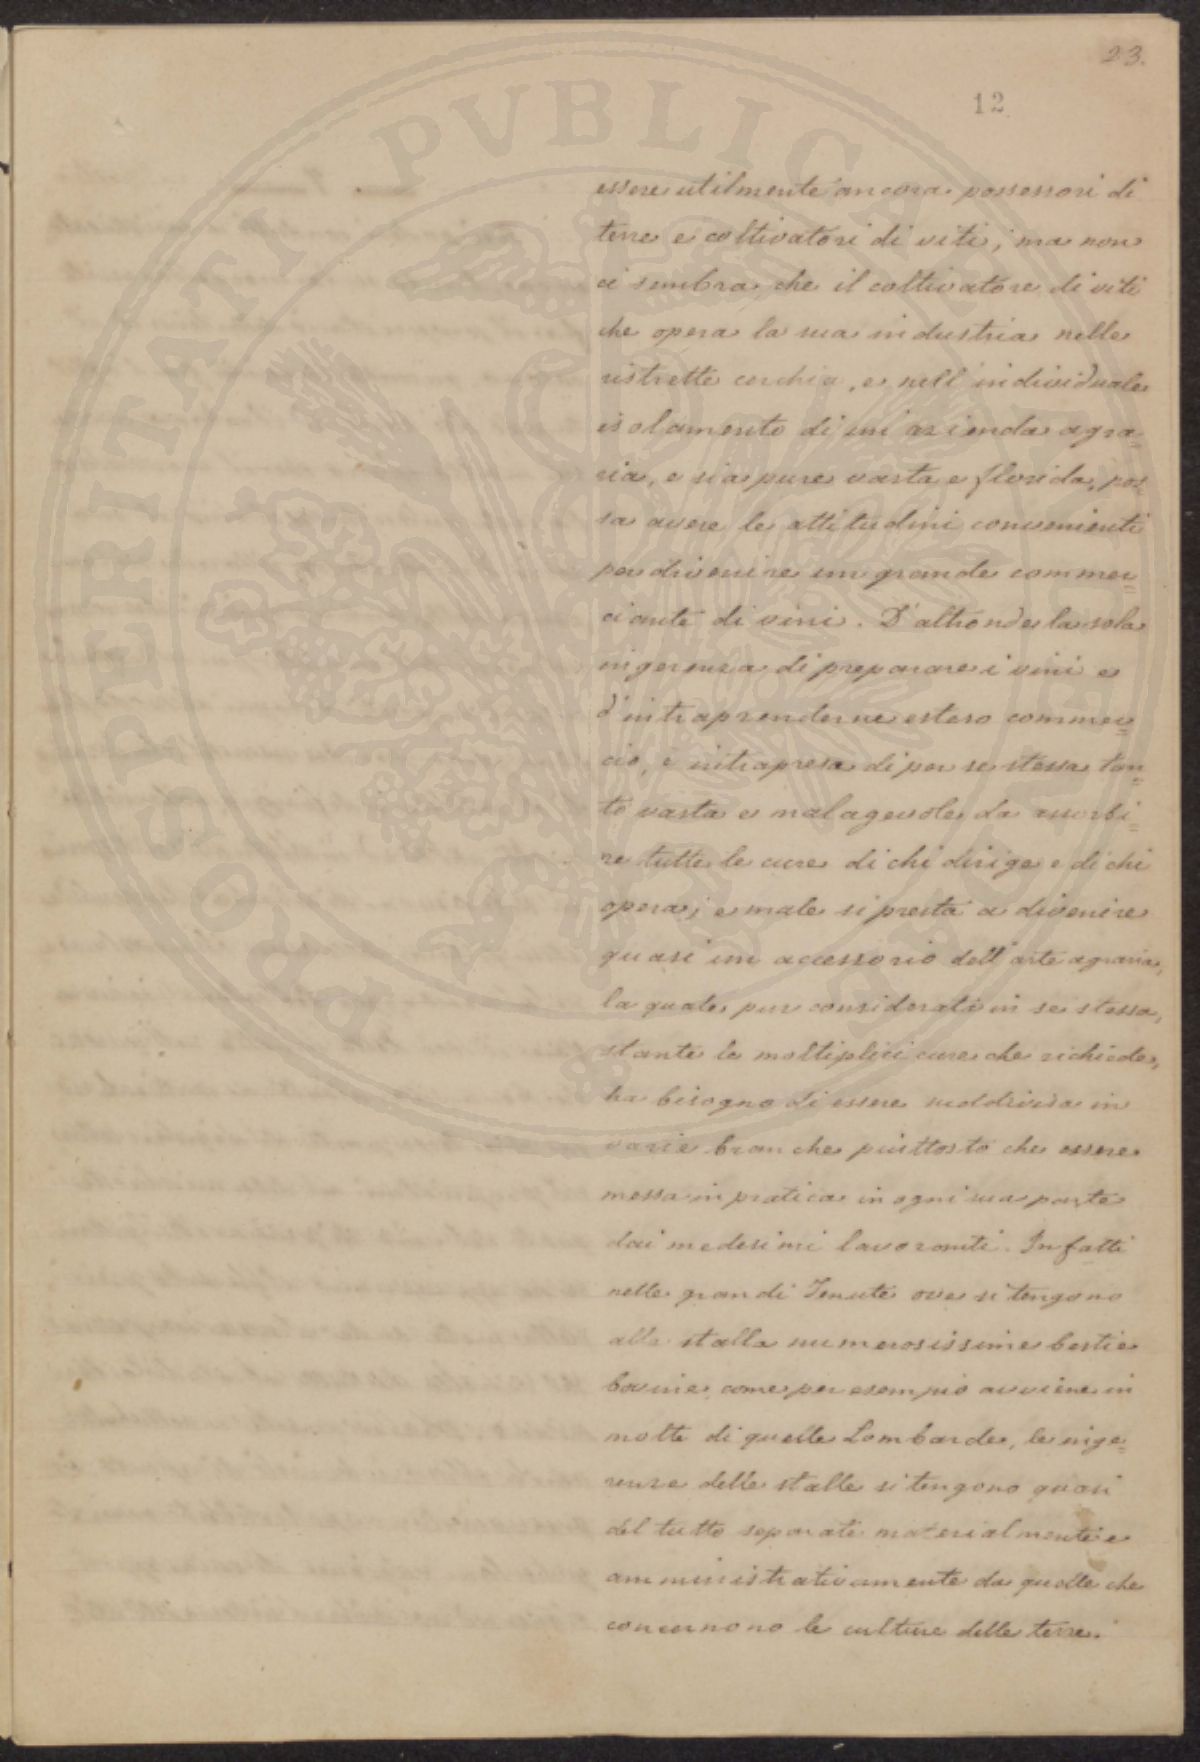 23.
12
PROSPERITATI PVBLICAE AVGENDAE
essere utilmente ancora possessori di
terre e coltivatori di viti; ma non
ci sembra che il coltivatore di viti
che opera la sua industria nelle
ristrette cerchia, e nell'individuale
isolamento di un'azienda agra=
ria, e sia pure vasta e florida, pos=
sa avere le attitudini convenienti
per divenire un grande commer=
ciante di vini. D'altronde la sola
ingerenza di preparare i vini e
d'intraprenderne estero commer=
cio, è intrapresa di per se stessa tan=
to vasta e malagevole da assorbi=
re tutte le cure di chi dirige e di chi
opera; e male si presta a divenire
quasi un accessorio dell'arte agraria,
la quale, pur considerata in se stessa,
stante le moltiplici cure che richiede,
ha bisogno di essere suddivisa in
varie branche piuttosto che essere
messa in pratica in ogni sua parte
dai medesimi lavoranti. Infatti
nelle grandi Tenute ove si tengono
alla stalla numerosissime bestie
bovine, come per esempio avviene in
molte di quelle Lombarde, le inge=
renze delle stalle si tengono quasi
del tutto separate materialmente e
amministrativamente da quelle che
concernono le culture delle terre.